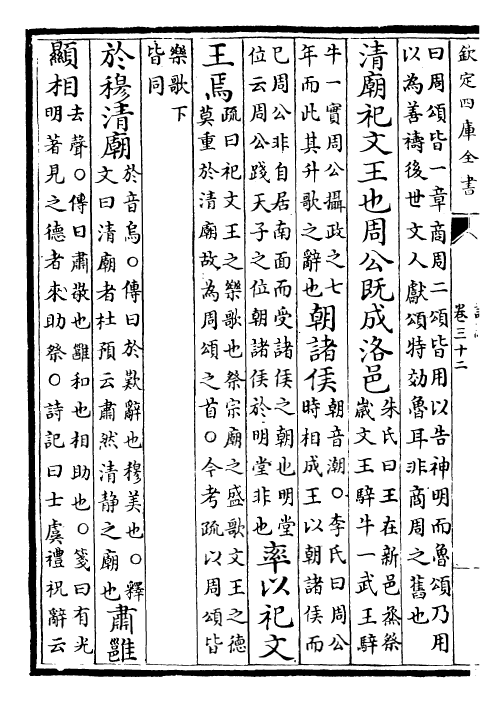 欽定四庫全書
卷三十二
曰周頌皆一章商周二頌皆用以告神明而魯頌乃用
以為善禱後世文人獻頌特効魯耳非商周之舊也
清廟祀文王也周公既成洛邑
朱氏曰王在新邑烝祭
歲文王騂牛一武王騂
牛一實周公攝政之七
年而此其升歌之辭也
朝諸侯
朝音潮○李氏曰周公
時相成王以朝諸侯而
已周公非自居南面而受諸侯之朝也明堂
位云周公踐天子之位朝諸侯於明堂非也
率以祀文
王焉
疏曰祀文王之樂歌也祭宗廟之盛歌文王之德
莫重於清廟故為周頌之首○今考疏以周頌皆
樂歌下
皆同
於穆清廟
於音烏○傳曰於歎辭也穆美也○釋
文曰清廟者杜預云肅然清静之廟也
肅雝
顯相
去聲○傳曰肅敬也雝和也相助也○箋曰有光
明著見之德者來助祭○詩記曰士虞禮祝辭云